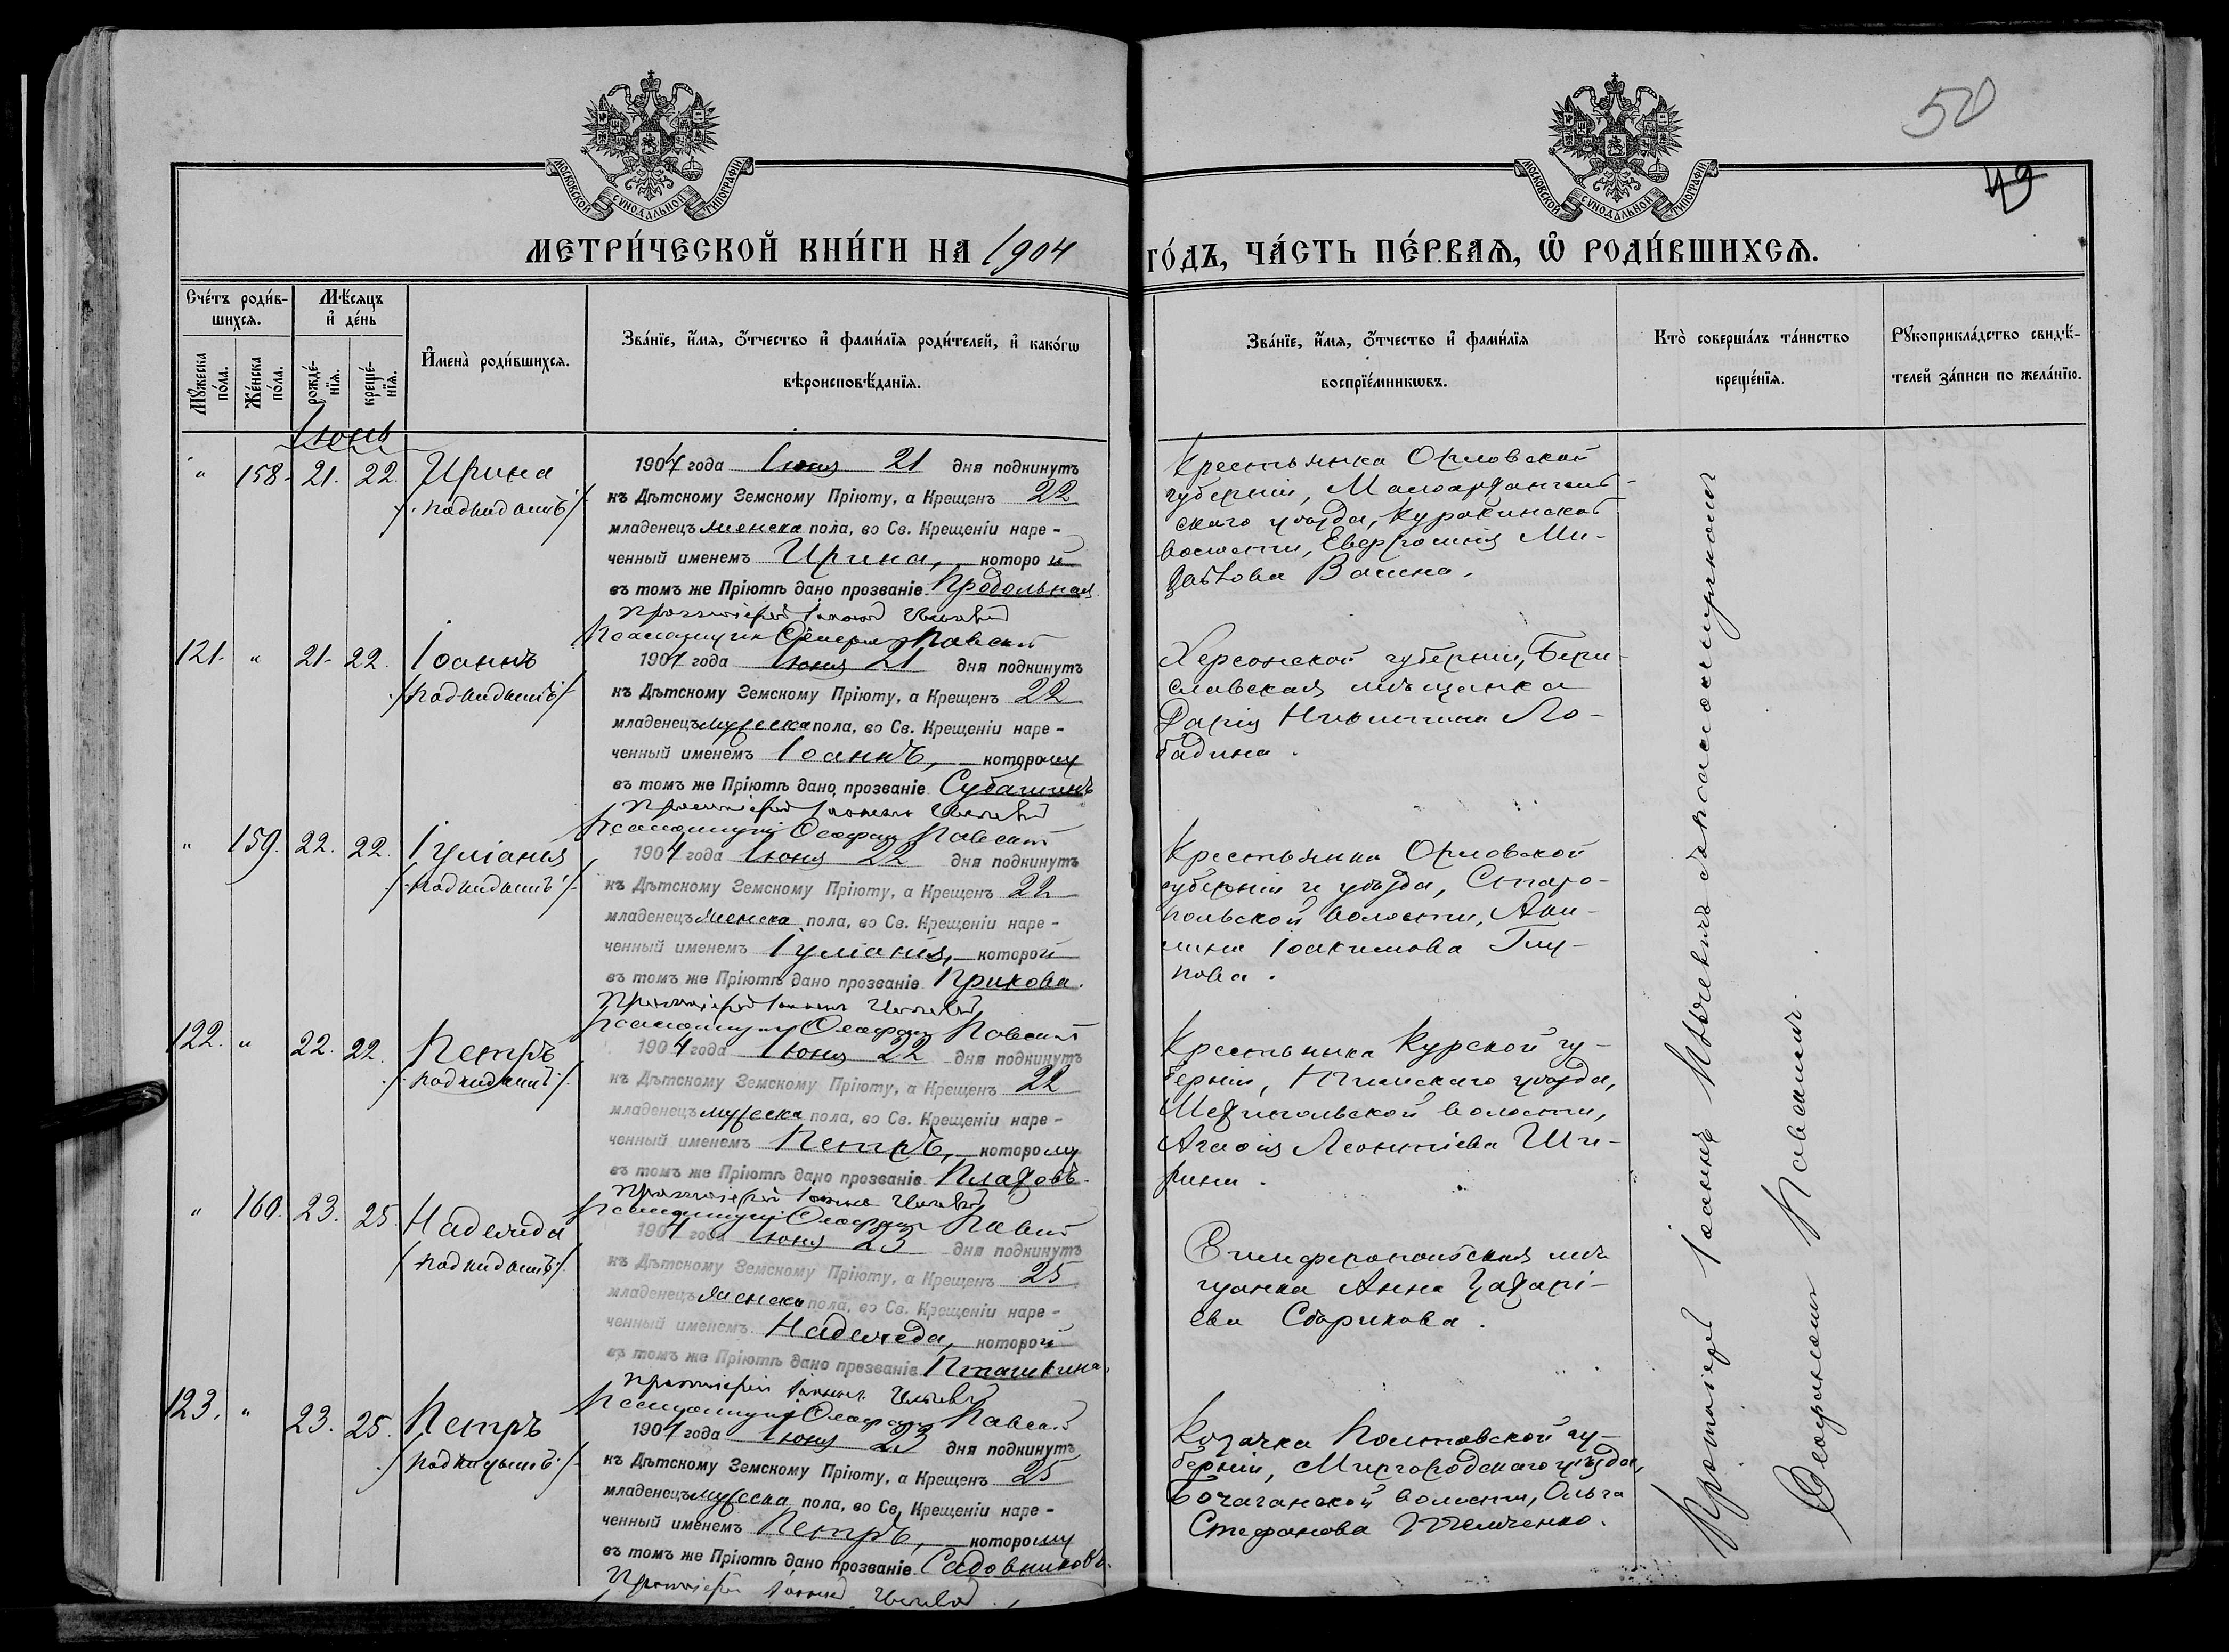 50
49
МОСКОВСКОЙ СУНОДАЛЬНОЙ ТИПОГРАФІИ
МОСКОВСКОЙ СУНОДАЛЬНОЙ ТИПОГРАФІИ
МЕТРИ́ЧЕСКОЙ КНИ́ГИ НА 1904
ГО́ДЪ, ЧА́СТЬ ПЕ́РВАѦ, Ѽ РОДИ́ВШИХСѦ.
Сче́тъ роди́в-
шихсѧ.
Мꙋ́жеска по́ла.
Же́нска по́ла.
Мѣ́сѧцъ
и҆ де́нь
рожде́-
нїѧ.
креще́-
нїѧ.
И҆мена̀ роди́вшихсѧ.
Зва́нїе, и҆́мѧ, ѻ҆́тчество и҆ фами́лїѧ роди́телей, и҆ како́гѡ
вѣроисповѣ́данїѧ.
Зва́нїе, и҆́мѧ, ѻ҆́тчество и҆ фами́лїѧ
воспрїе́мникѡвъ.
Кто̀ соверша́лъ та́инство
креще́нїѧ.
Рꙋкоприкла́дство свидѣ́-
телей за́писи по жела́нїю.
Іюнь
" 158. 21. 22. Ирина
/подкидышъ/
1904 года Іюня 21 дня подкинутъ
къ Дѣтскому Земскому Пріюту, а Крещенъ 22
младенецъ женска пола, во Св. Крещеніи наре-
ченный именемъ Ирина, которой
въ томъ же Пріютѣ дано прозваніе Продольная.
Протоіерей Іоаннъ
Псаломщикъ Павскій
Крестьянка Орловской
губерніи, Малоархангель-
скаго уѣзда, Куракинской
волости, Евфросинія Ми-
Вачина.
121. " 21. 22. Іоаннъ
/подкидышъ/
1904 года Іюня 21 дня подкинутъ
къ Дѣтскому Земскому Пріюту, а Крещенъ 22
младенецъ мужеска пола, во Св. Крещеніи наре-
ченный именемъ Іоаннъ, которому
въ томъ же Пріютѣ дано прозваніе Субашинъ
Протоіерей Іоаннъ
Псаломщикъ Павскій
Херсонской губерніи, Бери-
славская мѣщанка
Дарія Никитина Ло-
бадина.
" 159. 22. 22. Іуліанія
/подкидышъ/
1904 года Іюня 22 дня подкинутъ
къ Дѣтскому Земскому Пріюту, а Крещенъ 22
младенецъ женска пола, во Св. Крещеніи наре-
ченный именемъ Іуліанія, которой
въ томъ же Пріютѣ дано прозваніе Прикова.
Протоіерей Іоаннъ
Псаломщикъ Павскій
Крестьянка Орловской
губерніи и уѣзда, Старо-
польской волости, Аки-
лина Іоакимова Глу-
пова.
122. " 22. 22. Петръ
/подкидышъ/
1904 года Іюня 22 дня подкинутъ
къ Дѣтскому Земскому Пріюту, а Крещенъ 22
младенецъ мужеска пола, во Св. Крещеніи наре-
ченный именемъ Петръ, которому
въ томъ же Пріютѣ дано прозваніе
Протоіерей Іоаннъ
Псаломщикъ Павскій
Крестьянка Курской гу-
берніи, уѣзда,
волости,
Агафія Леонтіева Ши-
рина.
" 160. 23. 25. Надежда
/подкидышъ/
1904 года Іюня 23 дня подкинутъ
къ Дѣтскому Земскому Пріюту, а Крещенъ 25
младенецъ женска пола, во Св. Крещеніи наре-
ченный именемъ Надежда, которой
въ томъ же Пріютѣ дано прозваніе Пташкина.
Протоіерей Іоаннъ
Псаломщикъ Павскій
Симферопольская мѣ-
щанка Анна Захарі-
ева
123. " 23. 25. Петръ
/подкидышъ/
1904 года Іюня 23 дня подкинутъ
къ Дѣтскому Земскому Пріюту, а Крещенъ 25
младенецъ мужеска пола, во Св. Крещеніи наре-
ченный именемъ Петръ, которому
въ томъ же Пріютѣ дано прозваніе Садовниковъ.
Протоіерей Іоаннъ
Козачка Полтавской гу-
берніи, Миргородскаго уѣзда,
волости, Ольга
Стефанова
Протоіерей Іоаннъ съ псаломщикомъ
Павскимъ.